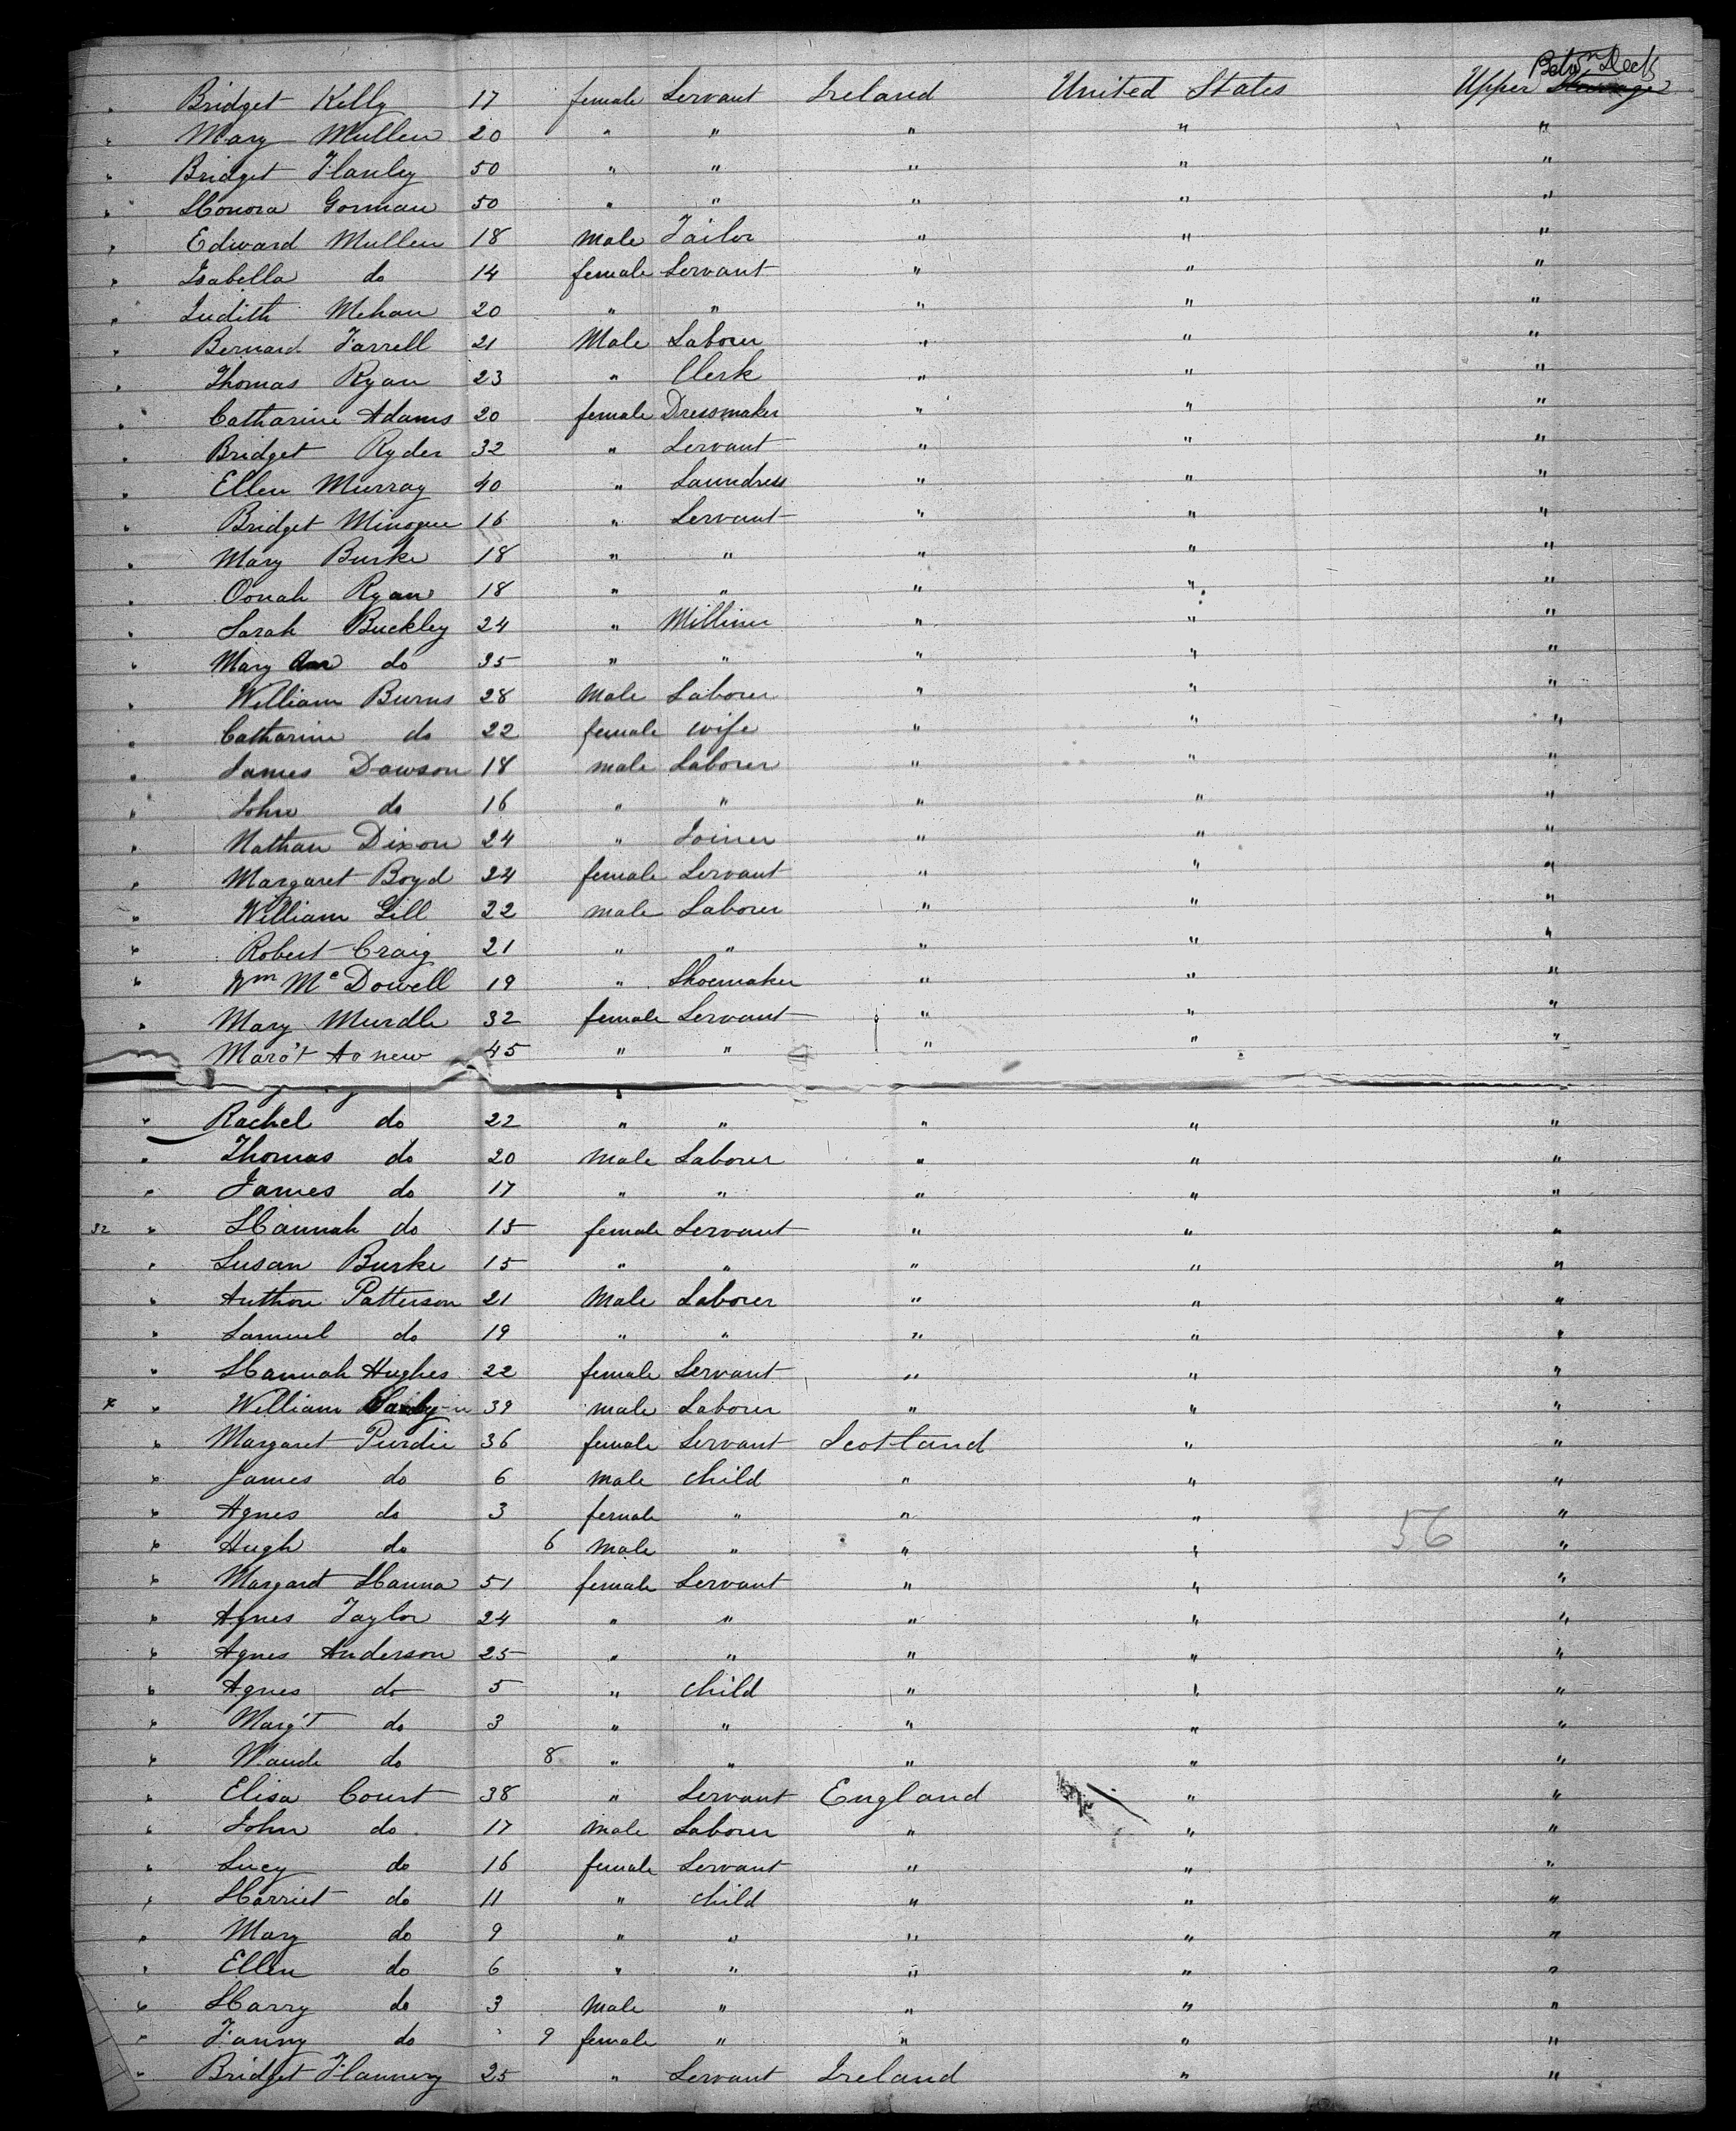 Betwn Decks
Bridget Kelly 17 female Servant Ireland United States Upper Steerage
" Mary Mullen 20 " " " " "
" Bridget Flanley 50 " " " " "
" Honora Gorman 50 " " " " "
" Edward Mullen 18 Male Tailor " " "
" Isabella do 14 female Servant " " "
" Judith Mehan 20 " " " " "
" Bernard Farrell 21 Male Laborer " " "
" Thomas Ryan 23 " Clerk " " "
" Catharine Adams 20 female Dressmaker " " "
" Bridget Ryder 32 " Servant " " "
" Ellen Murray 40 " Laundress " " "
" Bridget Minogue 16 " Servant " " "
" Mary Burke 18 " " " " "
" Oonah Ryan 18 " " " " "
" Sarah Buckley 24 " Milliner " " "
" Mary Ann do 25 " " " " "
" William Burns 28 Male Laborer " " "
" Catharine do 22 female wife " " "
" James Dawson 18 male Laborer " " "
" John do 16 " " " " "
" Nathan Dixon 24 " Joiner " " "
" Margaret Boyd 24 female Servant " " "
" William Gill 22 male Laborer " " "
" Robert Craig 21 " " " " "
" Wm McDowell 19 " Shoemaker " " "
" Mary Murdle 32 female Servant " " "
Marg't Agnew 45 " " " " "
" Rachel do 22 " " " " "
" Thomas do 20 Male Laborer " " "
" James do 17 " " " " "
32 " Hannah do 15 female Servant " " "
" Susan Burke 15 " " " " "
" Authon Patterson 21 Male Laborer " " "
" Samuel do 19 " " " " "
" Hannah Hughes 22 female Servant " " "
x " William 39 male Laborer " " "
" Margaret Purdie 36 female Servant Scotland " "
" James do 6 male child " " "
" Agnes do 3 female " " " "
" Hugh do 6 male " " " 56 "
" Margaret Hanna 51 female Servant " " "
" Agnes Taylor 24 " " " " "
" Agnes Anderson 25 " " " " "
" Agnes do 5 " child " " "
" Marg't do 3 " " " " "
" Maude do 8 " " " " "
" Elisa Court 38 " Servant England " "
" John do 17 male Laborer " " "
" Lucy do 16 female Servant " " "
" Harriet do 11 " child " " "
" Mary do 9 " " " " "
" Ellen do 6 " " " " "
" Harry do 3 Male " " " "
" Fanny do 9 female " " " "
" Bridget Flannery 25 " Servant Ireland " "